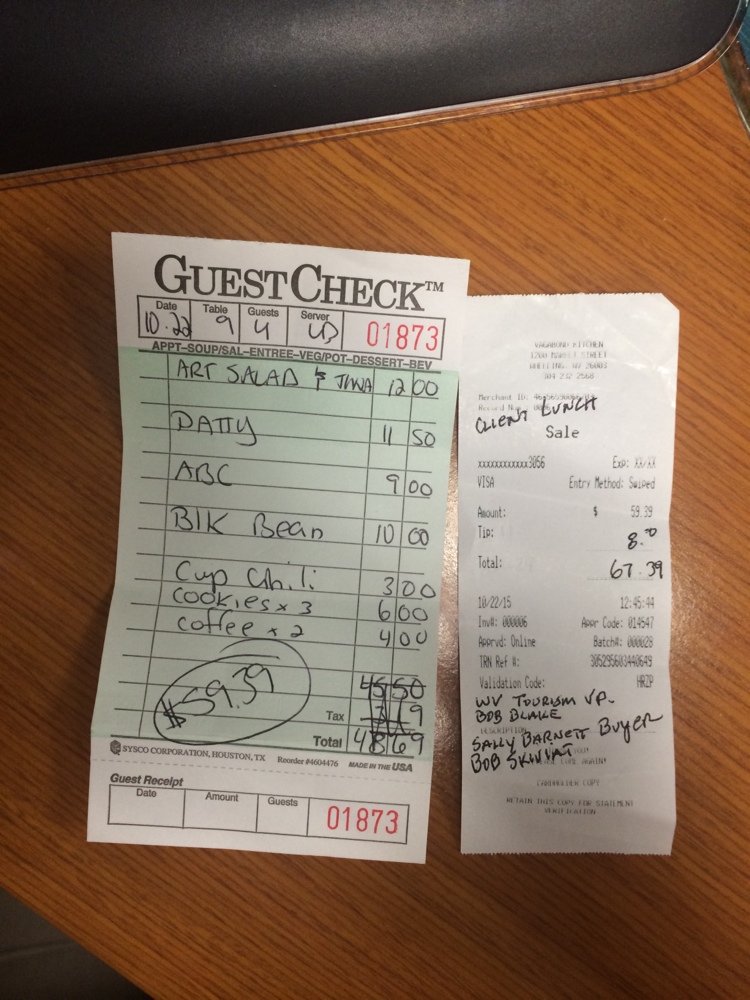 GUEST CHECK™
Date Table Guests Server
10.22 9 4 01873
APPT-SOUP/SAL-ENTREE-VEG/POT-DESSERT-BEV
ART SALAD & TUNA 12 00
PATTY 11 50
ABC 9 00
Blk Bean 10 00
Cup Chili 3 00
cookies x 3 6 00
coffee x 2 4 00
$59.39
45 50
Tax 3 19
Total 48 69
SYSCO CORPORATION, HOUSTON, TX Reorder #4604476 MADE IN THE USA
Guest Receipt
Date Amount Guests
01873
VAGABOND KITCHEN
1200 MARKET STREET
WHEELING, WV 26003
304 232 2668
Merchant ID:
Record Num
CLIENT LUNCH
Sale
xxxxxxxxxxxx3056 Exp: XX/XX
VISA Entry Method: Swiped
Amount: $ 59.39
Tip: 8.00
Total: 67.39
10/22/15 12:45:44
Inv#: 000006 Appr Code: 014547
Apprvd: Online Batch#: 000028
TRN Ref #: 305295603440649
Validation Code: HRZP
WV TOURISM VP.
BOB BLAKE
DESCRIPTION
SALLY BARNETT Buyer
BOB
COME AGAIN!
CARDHOLDER COPY
RETAIN THIS COPY FOR STATEMENT
VERIFICATION